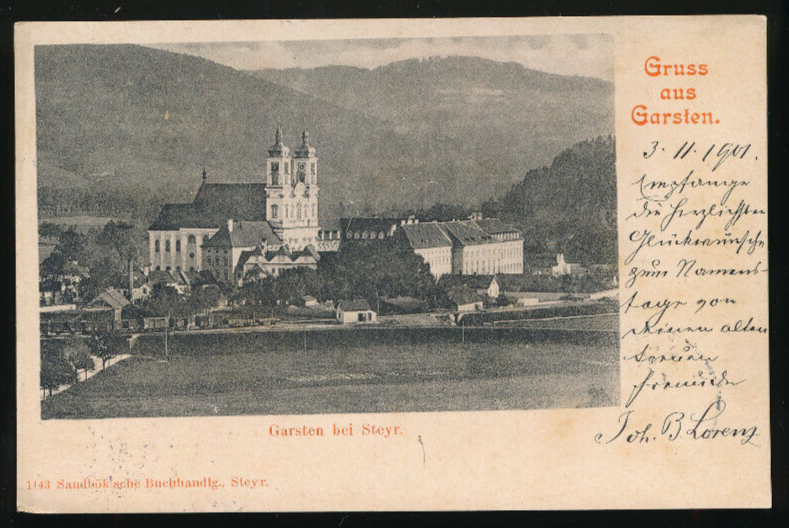 Gruss
aus
Garsten.
3. 11. 1901.
Empfange
die herzlichsten
Glückwünsche
zum Namens-
tage von
Deinem alten
treuen
Freunde
Joh. B. Lorenz
Garsten bei Steyr.
1143 Sandbök'sche Buchhandlg., Steyr.